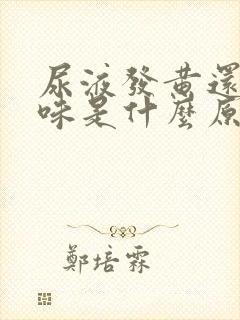 尿液發黃還
味是什麼原
鄭培霖